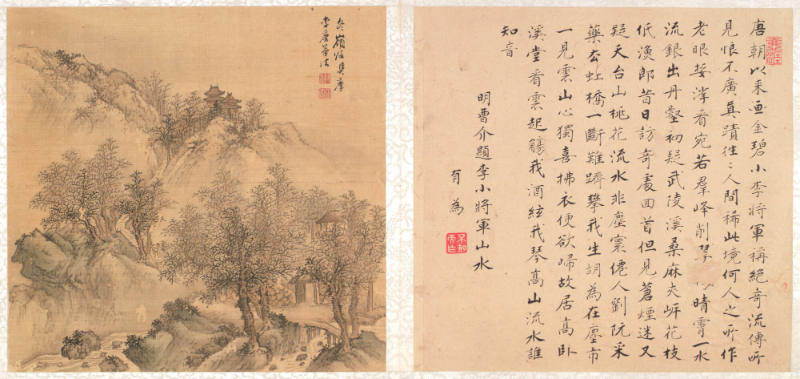 唐朝以來畫金碧小李將軍稱絕奇流傳所
見恨不廣真蹟往〻人間稀此境何人之所作
老眼挼挲看宛若羣峰削晴雪一水
流銀出丹壑初疑武陵溪桑麻夾岍花枝
低漁郎昔日訪奇處回首但見蒼煙迷又
疑天台山桃花流水非塵寰僊人劉阮采
藥去虹橋一斷難躋攀我生胡為在塵市
一見雲山心獨喜拂衣便欲歸故居高臥
溪堂看雲起觴我酒絃我琴高山流水誰
知音
明曹介題李小將軍山水
有為
冬嶺
李唐筆法